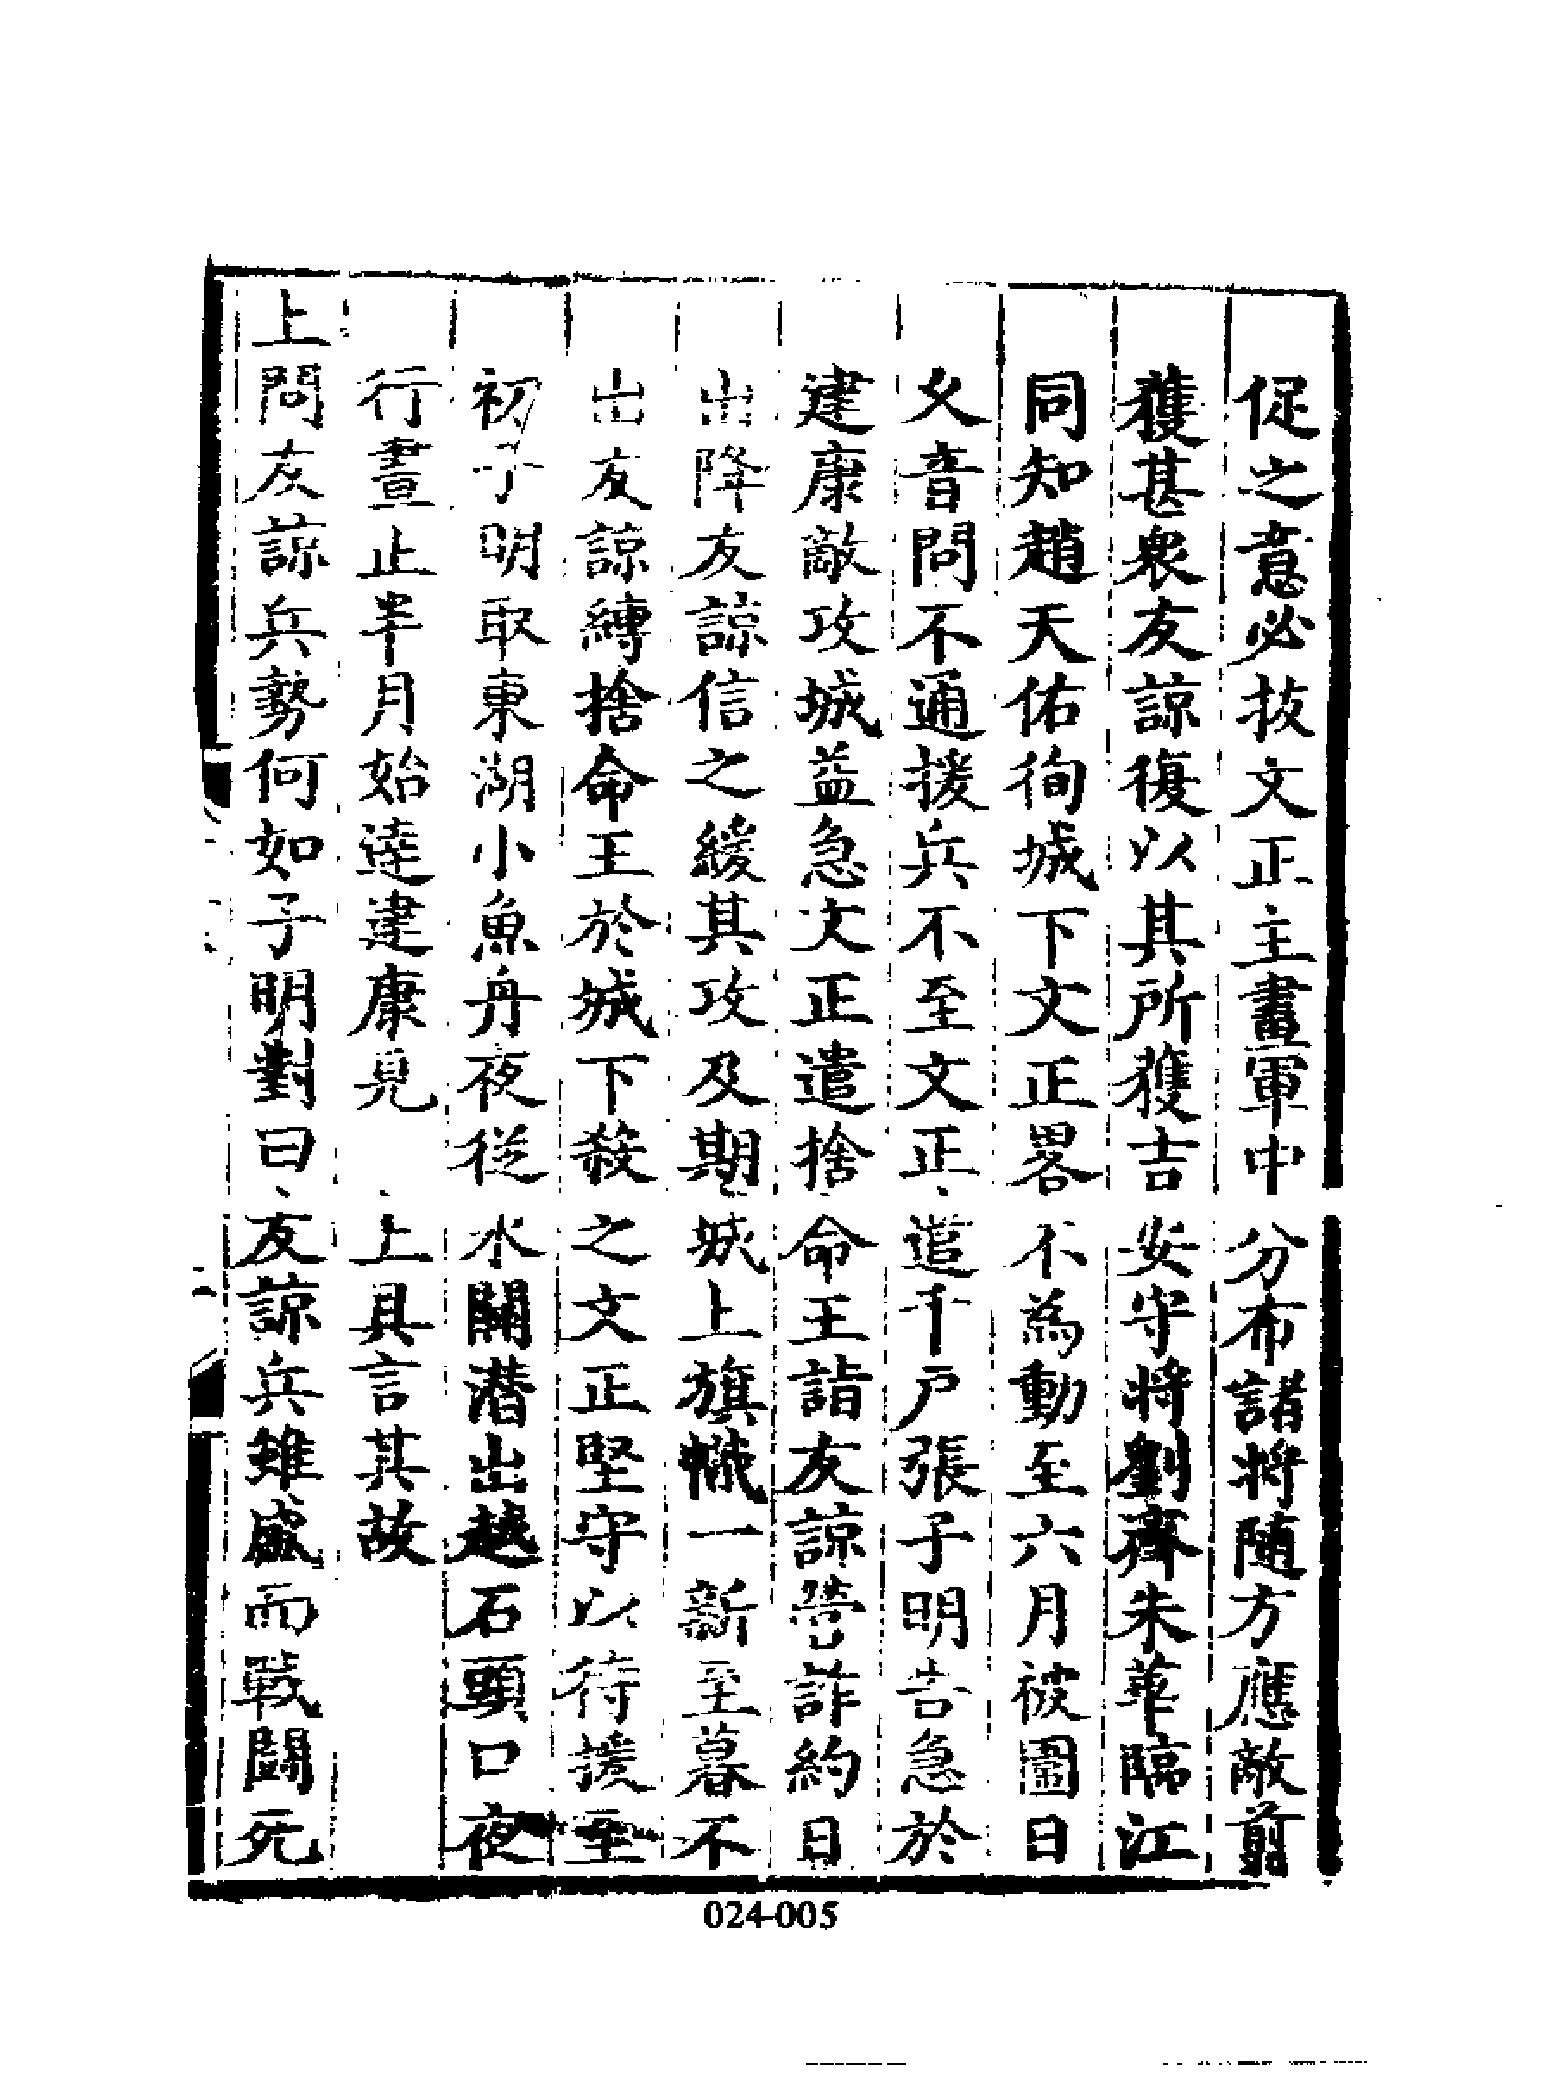 促之意必拔文正主畫軍中分布諸將随方應敵前
獲甚衆友諒復以其所獲吉安守將劉齊朱華臨江
同知趙天佑徇城下文正畧不為動至六月被圍日
乆音問不通援兵不至文正遣千戸張子明告急於
建康敵攻城益急文正遣捨命王詣友諒營詐約日
出降友諒信之緩其攻及期城上旗幟一新至暮不
出友諒縛捨命王於城下殺之文正堅守以待援至
初子明取東湖小魚舟夜從水關潜出越石頭口夜
行晝止半月始達建康見上具言其故
上問友諒兵勢何如子明對曰友諒兵雖盛而戰鬪死
024-005